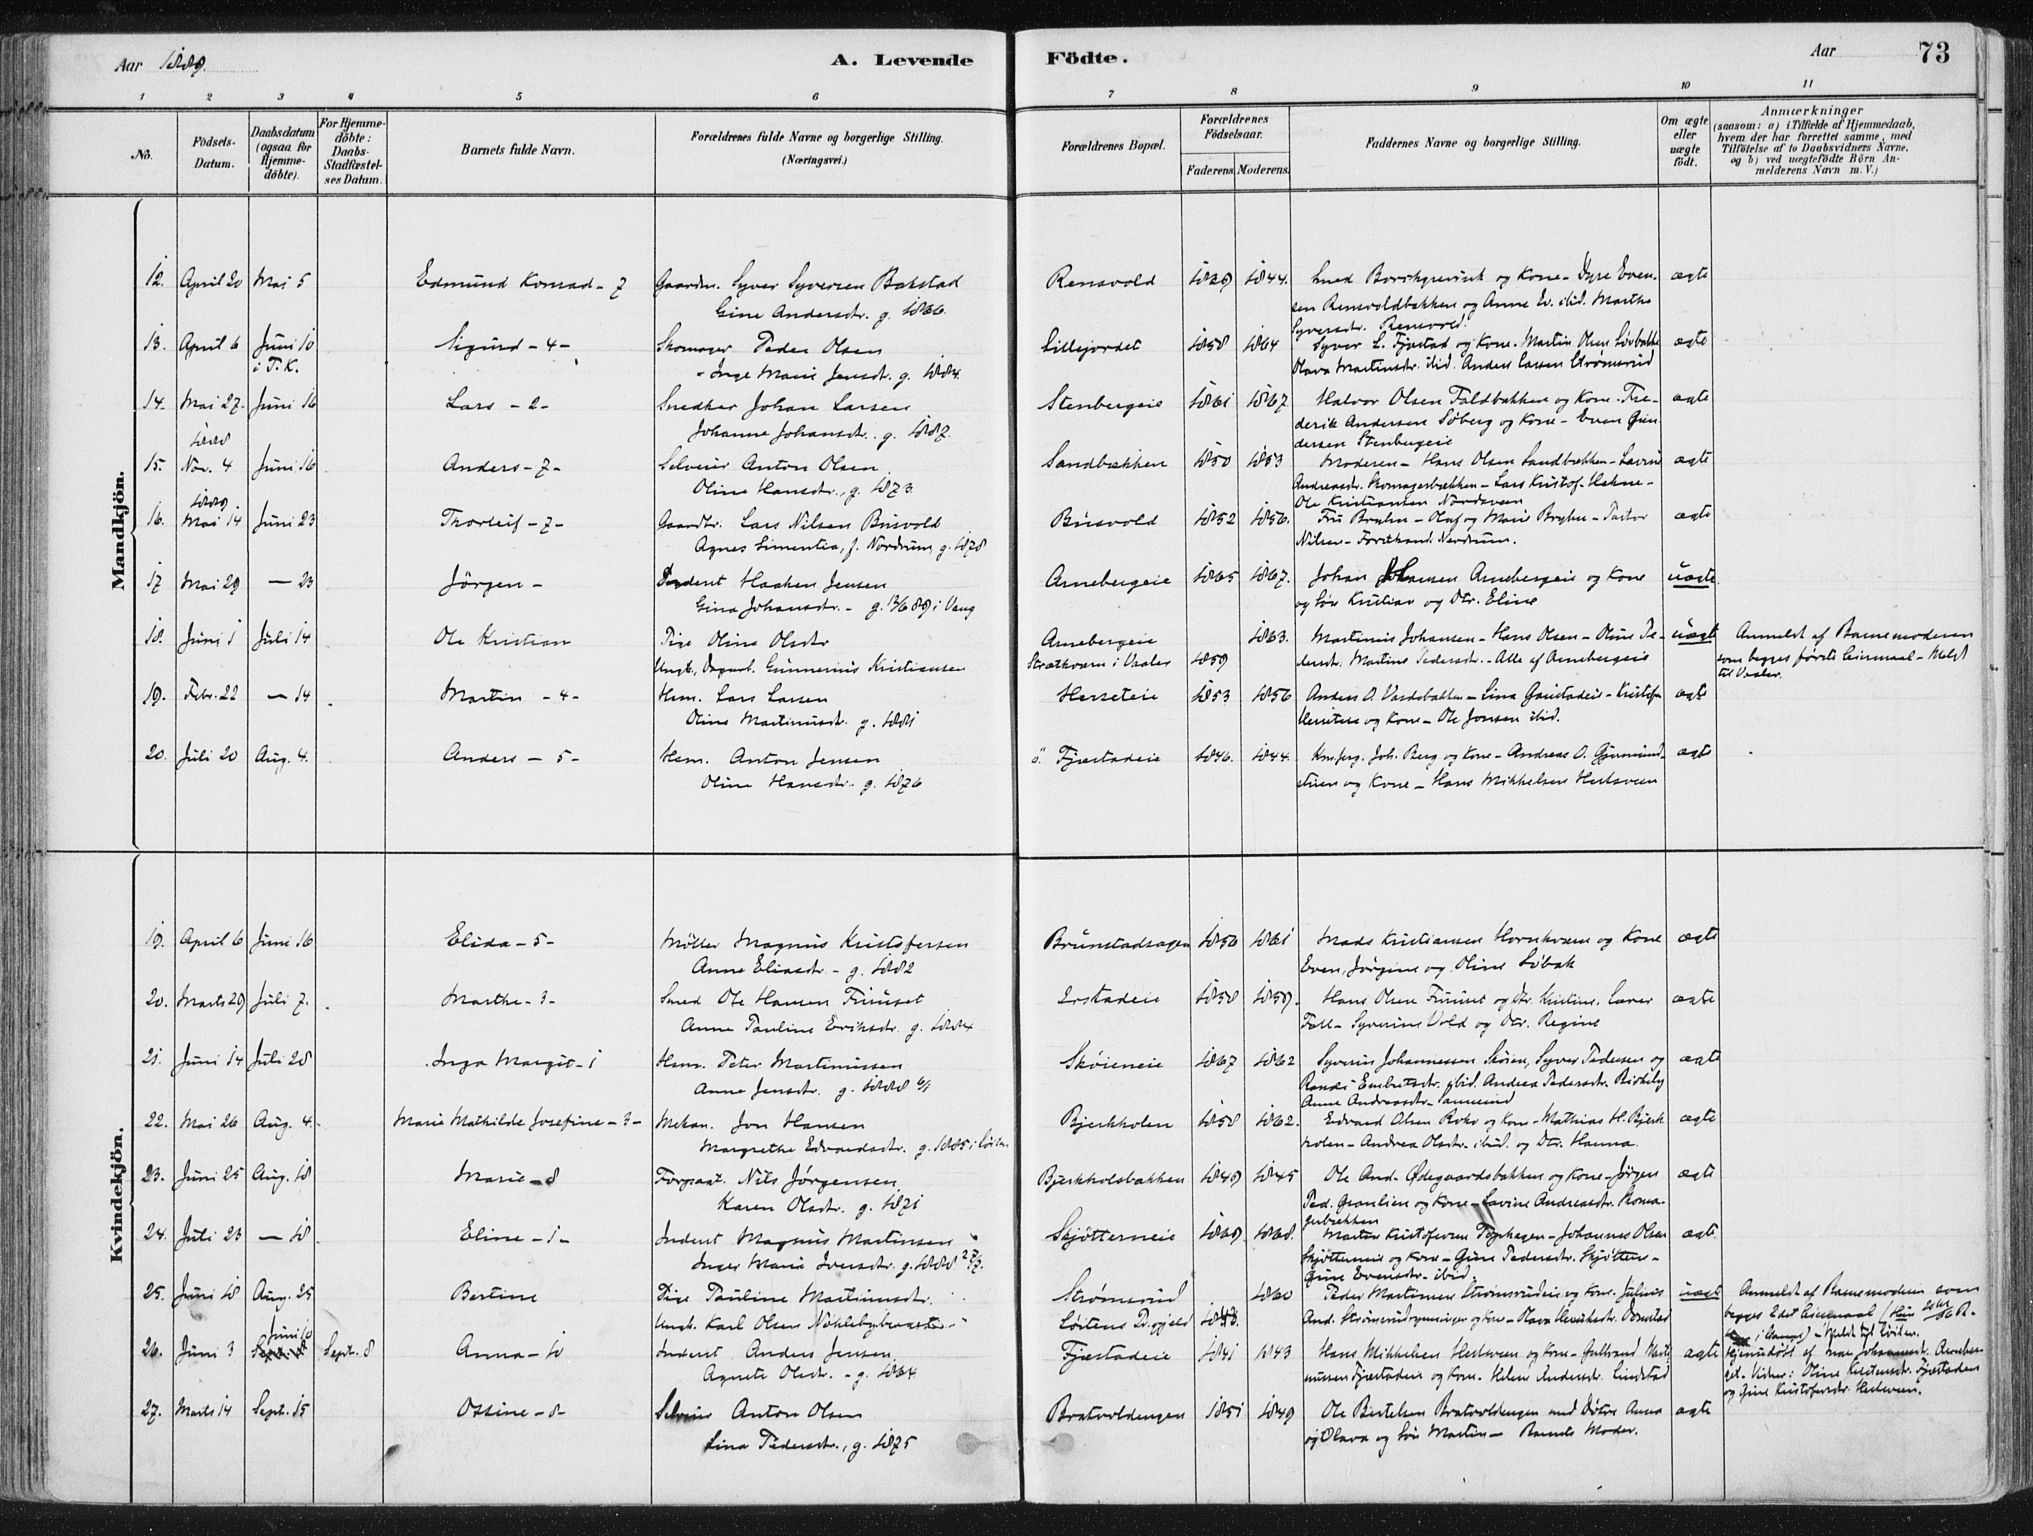 Aar 1889.
A. Levende Födte.
Aar
73
1 2 3 4 5 6 7 8 9 10 11
No.
Födsels-Datum.
Daabsdatum (ogsaa for Hjemmedöbte).
For Hjemmedöbte: Daabs-Stadfæstelses Datum.
Barnets fulde Navn.
Forældrenes fulde Navne og borgerlige Stilling. (Næringsvei.)
Forældrenes Bopæl.
Forældrenes Födselsaar.
Faderens. Moderens.
Faddernes Navne og borgerlige Stilling.
Om ægte eller uægte födt.
Anmærkninger
(saasom: a) i Tilfælde af Hjemmedaab, hvem der har forrettet samme, med Tilföielse af to Daabsvidners Navne, og b) ved uægtefödte Börn Anmelderens Navn m. V.)
Mandkjön.
12. April 20 Mai 5 Edmund Konrad - 7 Gaardm. Syver Syversen Bakstad Rensvold 1839 1844. Borchgrevink og Kone - Dyre Even- ægte
Gine Andersdr. g. 1866. sen Rensvoldbakken og Anne Ev. ibid. Marthe
Syversdr. Rensvold.
13. April 6 Juni 10 Sigurd - 4 - Skomager Peder Olsen Lillejordet 1858 1864 Syver L. Fjæstad og Kone. Martin Olsen Løvbakke ægte
i T. K. Inge Marie Jensdr. g. 1884. Olava Martinsdr. ibid. Anders Larsen Strømsrud
14. Mai 27. Juni 16 Lars - 2 - Snedker Johan Larsen Stenbergeie 1861 1867 Halvor Olsen Faldbakken og Kone. Fre- ægte
Johanne Johansdr. g. 1887. derik Andersen Søberg og Kone - Even Gun
dersen Stenbergeie
1888
15. Nov. 4 Juni 16 Anders - 7 - Selveier Anton Olsen Sandbækken 1850 1853 Moderen - Hans Olsen Sandbækken - Lavine ægte
Oline Hansdr., g. 1873. Andreasdr. Skomagerbækken - Lars Kristof.
Ole Kristiansen Nordsveen
1889
16. Mai 14 Juni 23 Thorleif - 7 - Gaardbr. Lars Nilsen Busvold Busvold 1852 1856. Fru Bryhn - Olaf og Marie Bryhn - Pastor ægte
Agnes Simentia, f. Nordrum, g. 1878 Nilsen - Nordrum.
17 Mai 29 — 23 Jörgen - Inderst Haaken Jensen Arnebergeie 1865 1867. Johan Johansen Arnebergeie og Kone uægte.
Gina Johansdr. - g. 13/6 89 i Vang og Søn Kristian og Dtr. Eline
18. Juni 1 Juli 14 Ole Kristian Pige Oline Olsdtr Arnebergeie 1863. Martinus Johansen - Hans Olsen - Oline Pe- uægte Anmeldt af Barnemoderen
Ungk., Dagarb. Gunnerius Kristiansen i Vaaler 1859 dersdr. Martine Pedersdr. - Alle af Arnebergeie som begges første Leiermaal - Meldt
til Vaaler.
19. Febr. 22 — 14 Martin - 4 - Hsm. Lars Larsen Herseteie 1853 1856 Anders O. Vardebakken - Lina Gaustadeie - Kristofer ægte
Oline Martinusdr. g. 1881 og Kone - Ole Jonsen ibid.
20. Juli 20 Aug. 4. Anders - 5 - Hsm. Anton Jensen ö. Fjæstadeie 1846. 1844. Joh. Berg og Kone - Andreas O. ægte
Oline Hansdr. g. 1876 og Kone - Hans Mikkelsen Hertsveen
Kvindekjön.
19. April 6 Juni 16 Elida - 5 - Møller Magnus Kristofersen Brunstadsagen 1850 1861 Mads Kristiansen Hornkværn og Kone ægte
Anne Eliasdr. - g. 1882 Even, Jørgine og Oline Löbak
20. Marts 29 Juli 7. Marthe - 3 - Smed Ole Hansen Fruuset Erstadeie 1858 1859. Hans Olsen Fruuset og Dtr. Kristine. ægte
Anne Pauline Eriksdr. g. 1884 Fall - Syverine Vold og Dtr. Regine
21. Juni 14 Juli 28 Inga Margit - 1 Hsm. Peter Martinussen Skøieneie 1867 1862 Syverin Johannessen Skøien, Syver Pedersen og ægte
Anne Jensdr. g. 1888 6/1 Randi Embretsdr. ibid. Andrea Pedersdr. Birkeby
Anne Andreasdr.
22. Mai 26 Aug. 4. Marie Mathilde Josefine - 3 - Mekan. Jon Hansen Bjerkholen 1858 1862. Edvard Olsen Roko og Kone - Mathias H. Bjerk ægte
Margrethe Edvardsdr. g. 1885 i Løiten holen - Andrea Olsdr. ibid. og Dtr. Hanna.
23. Juni 25 Aug. 18 Marie - 8 Forpagt. Nils Jørgensen Bjerkholsbakken 1849 1845 Ole And. Ødegaardsbakken og Kone - Jørgen ægte
Karen Olsdr. g. 1871 Ped. Granlien og Kone - Lavine Andreasdr. Skoma
gerbækken
24. Juli 23 — 18 Eline - 1 - Inderst Magnus Martinsen Skjötterneie 1869 1868. Martin Kristofersen Tophagen - Johannes Olsen ægte.
Inger Marie Iversdr. g. 1888 27/12. Skjötterneie og Kone - Gine Pedersdr. Skjötter -
Gine Evensdr. ibid.
25. Juni 18 Aug. 25 Bertine Pige Pauline Martinusdr. Strømsrud 1860 Peder Martinsen Strømsrudeie og Kone. Julius uægte Anmeldt af Barnemoderen som
Ungk. Karl Olsen Nöklebybraaten - Løitens Pr.gjeld And. og Kone - Olava Henriksdr. Ørnstad begges 2det Leiermaal (Hun
i Vang) - Meldt til Løiten.
26. Juni 3 Juni 10 Sept. 8 Anna - 10 Inderst Anders Jensen Fjæstadeie 1841 1843 Hans Mikkelsen Hertsveen og Kone - Gulbrand Marti ægte hjemmedøbt af Johannesdr. Arneber
Agnete Olsdr. - g. 1864 nussen Fjæstadeie og Kone. Helene Andersdr. Lindstad get. Vidner: Oline Kristensdr. Fjæstadeie
og Gine Kristofersdr. Hertsveen.
27. Marts 14 Sept. 15 Ossine - 8 - Selveier Anton Olsen Bratvoldengen 1851 1849 Ole Bertelsen Bratvoldengen med Døtre Anna ægte
Lina Pedersdr., g. 1875 og Olava og Søn Martin - Barnets Moder.